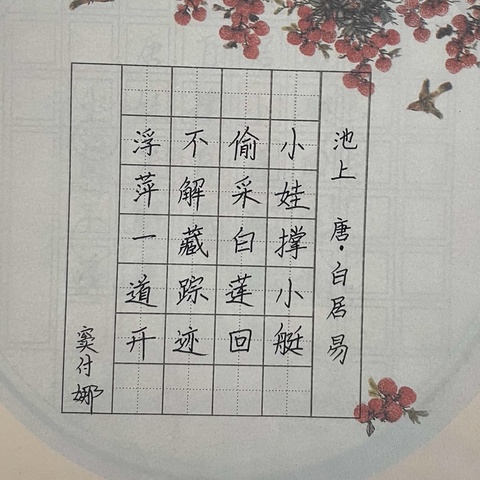 池上 唐·白居易
小娃撑小艇
偷采白莲回
不解藏踪迹
浮萍一道开
窦付娜